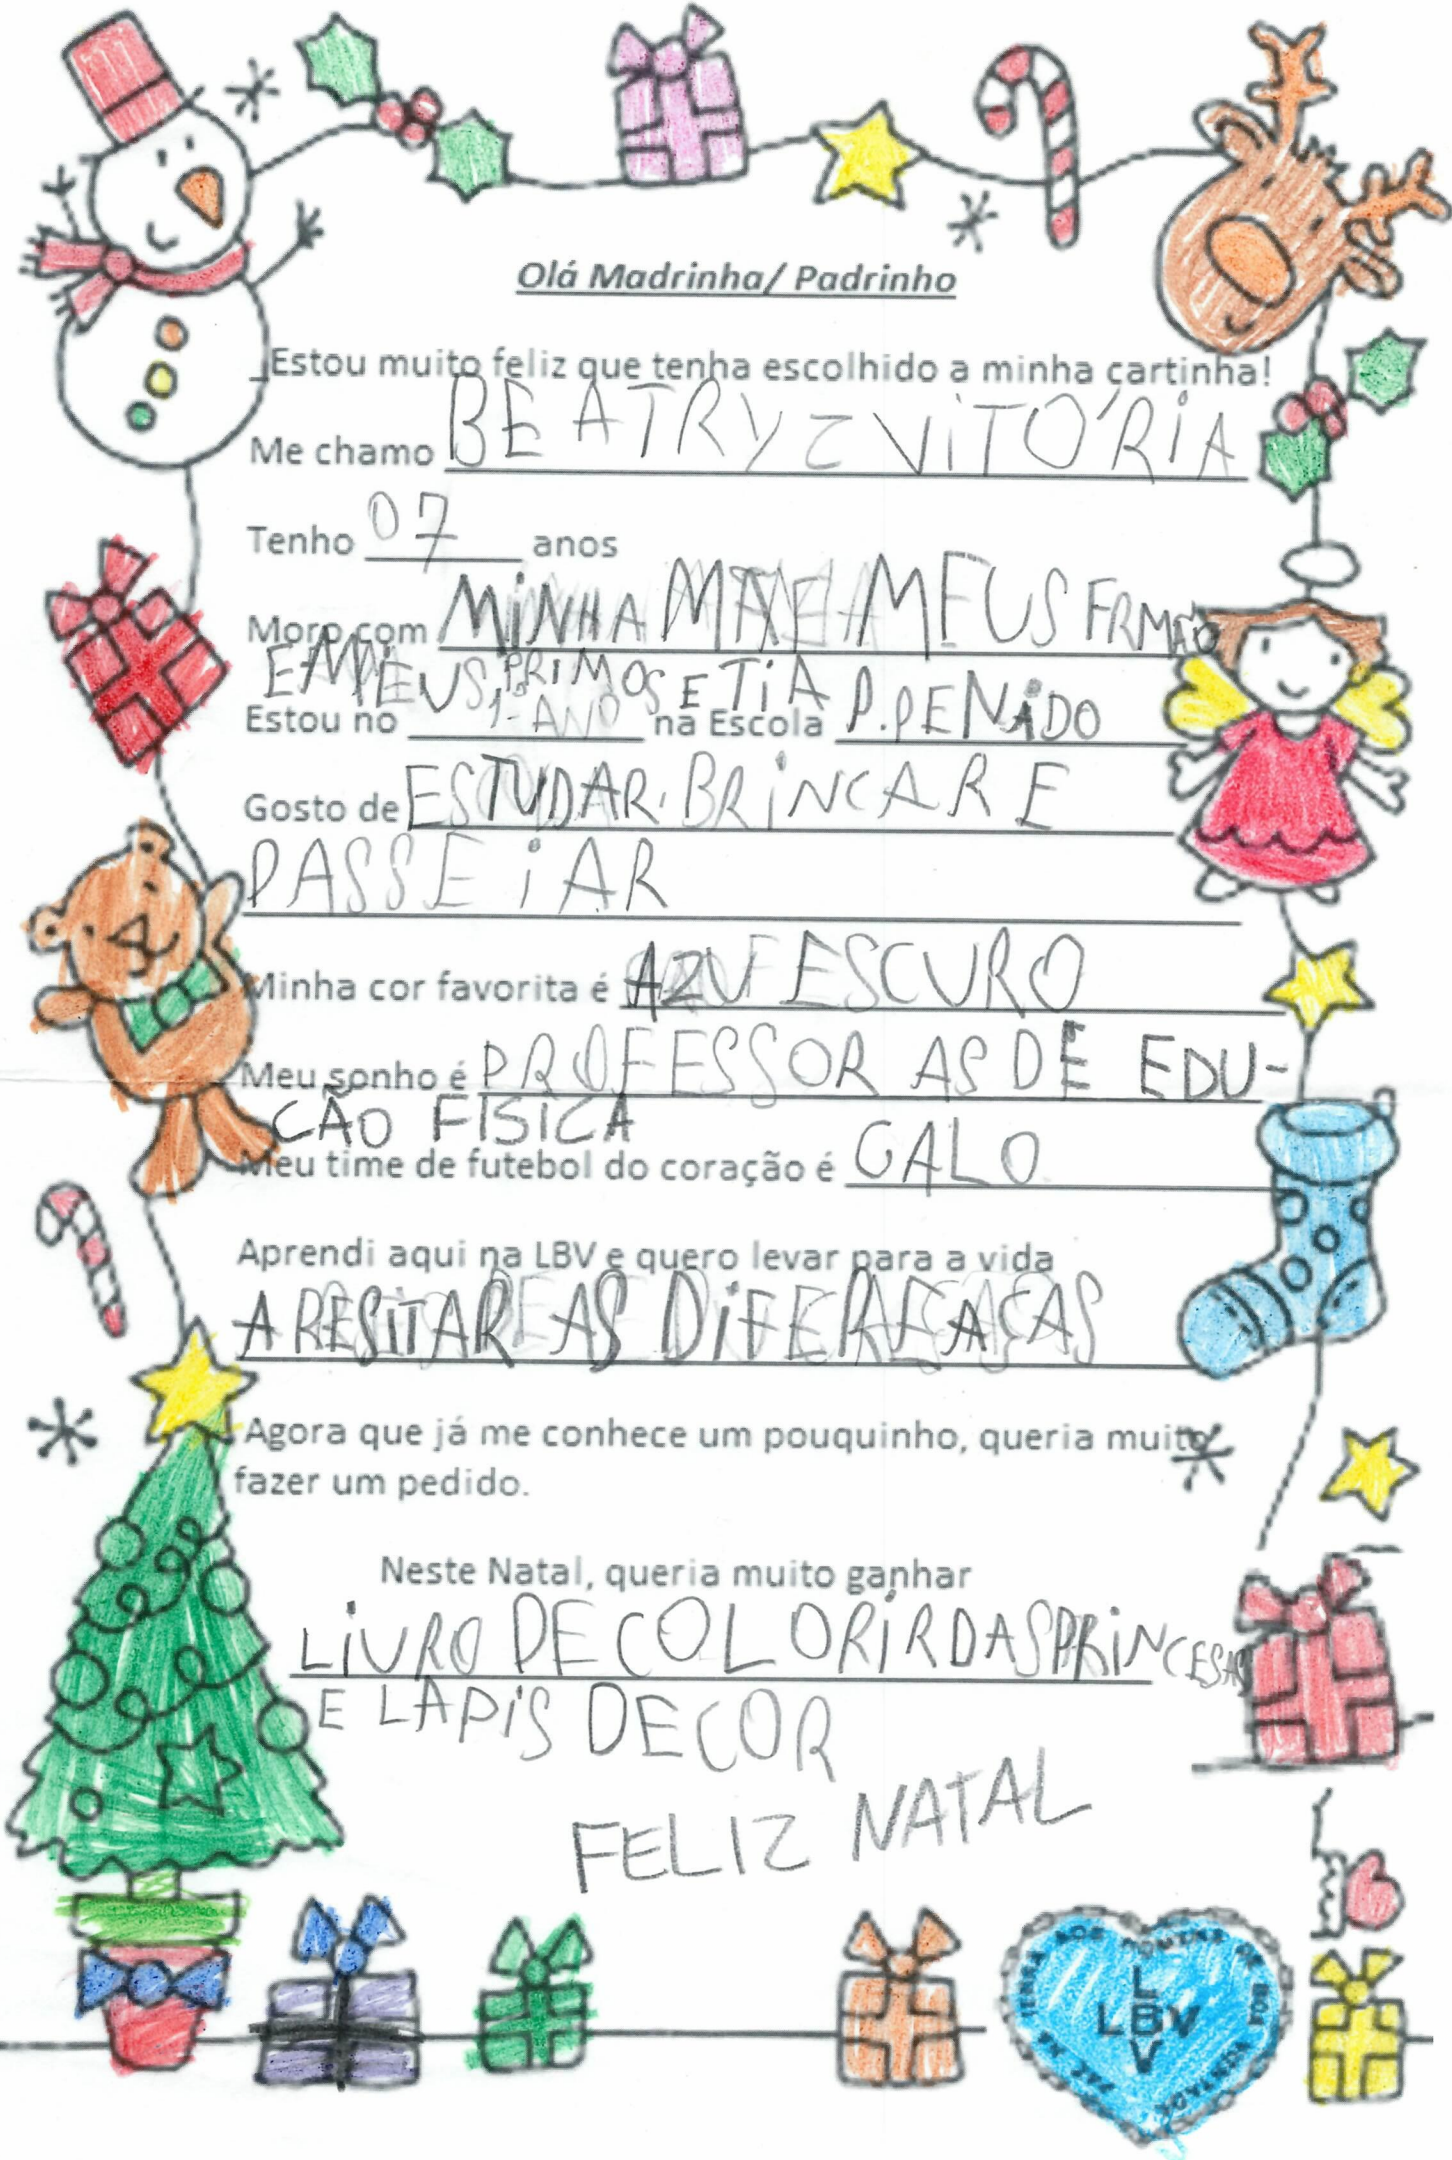 Olá Madrinha/ Padrinho
Estou muito feliz que tenha escolhido a minha cartinha!
Me chamo BEATRYZ VITÓRIA
Tenho 07 anos
Moro com MINHA MÃE MEUS
E MEUS PRIMOS E TIA
Estou no 1- ANO na Escola P. PENIDO
Gosto de ESTUDAR. BRINCAR E
PASSEIAR
Minha cor favorita é AZU ESCURO
Meu sonho é PROFESSORAS DE EDU-
CÃO FISICA
Meu time de futebol do coração é GALO
Aprendi aqui na LBV e quero levar para a vida
A RESITAR AS
Agora que já me conhece um pouquinho, queria muito
fazer um pedido.
Neste Natal, queria muito ganhar
LIVRO DE COLORIR DAS PRINCESAS
E LAPIS DE COR
FELIZ NATAL
L
LBV
V